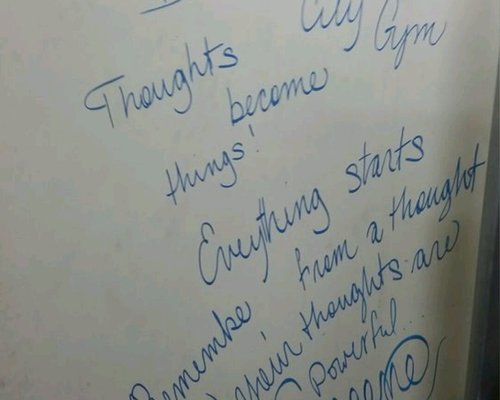 City Gym
Thoughts
become
things!
Everything starts
from a thought
Remember
your thoughts are
powerful...